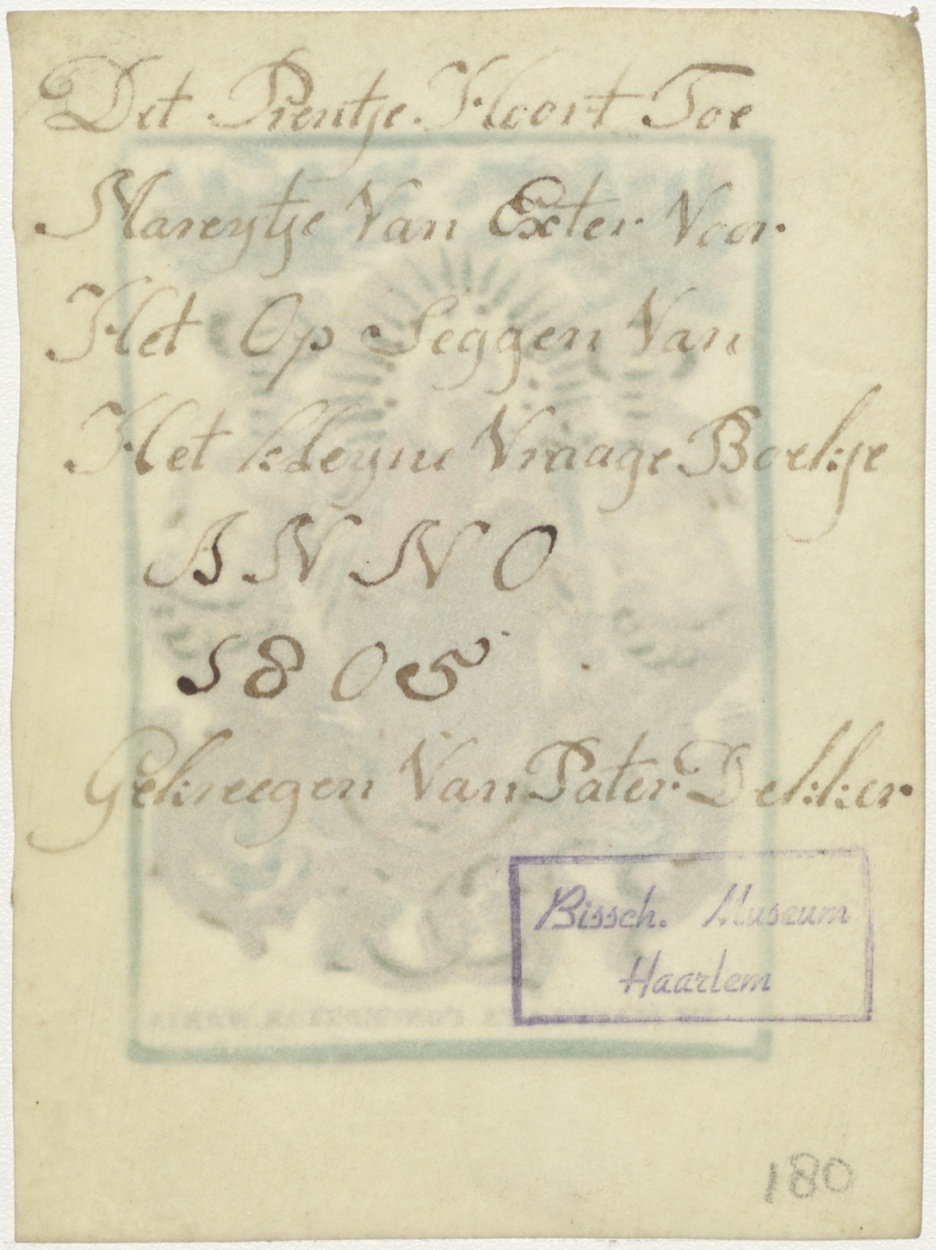 Dit Prentje Hoort Toe
Mareytje Van Exter Voor
Het Op Seggen Van
Het kleyne Vraage Boekje
ANNO
1805
Gekreegen Van Pater Dekker
Bissch. Museum
Haarlem
180